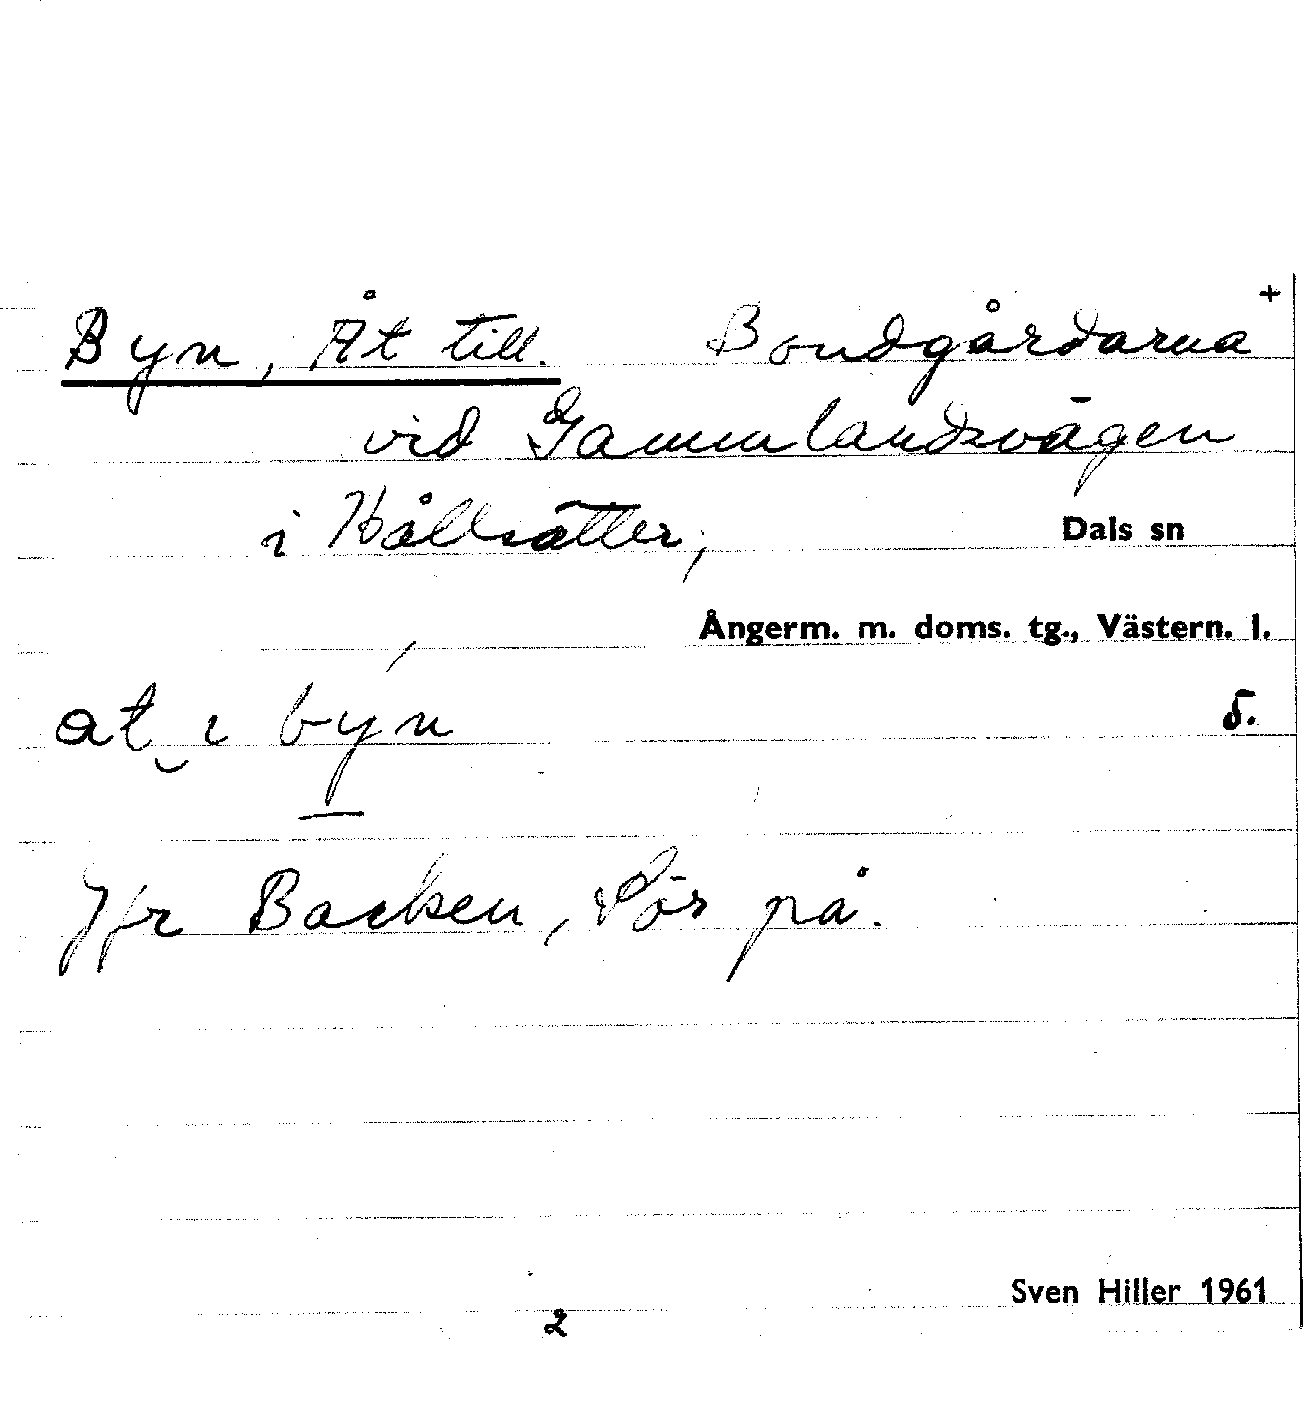 Byn, Åt till. Bondgårdarna +
vid Gammlandsvägen
i Hållsätter, Dals sn
Ångerm. m. doms. tg., Västern. l.
at‿i býn 5.
Jfr Backen, Sör på.
Sven Hiller 1961
2